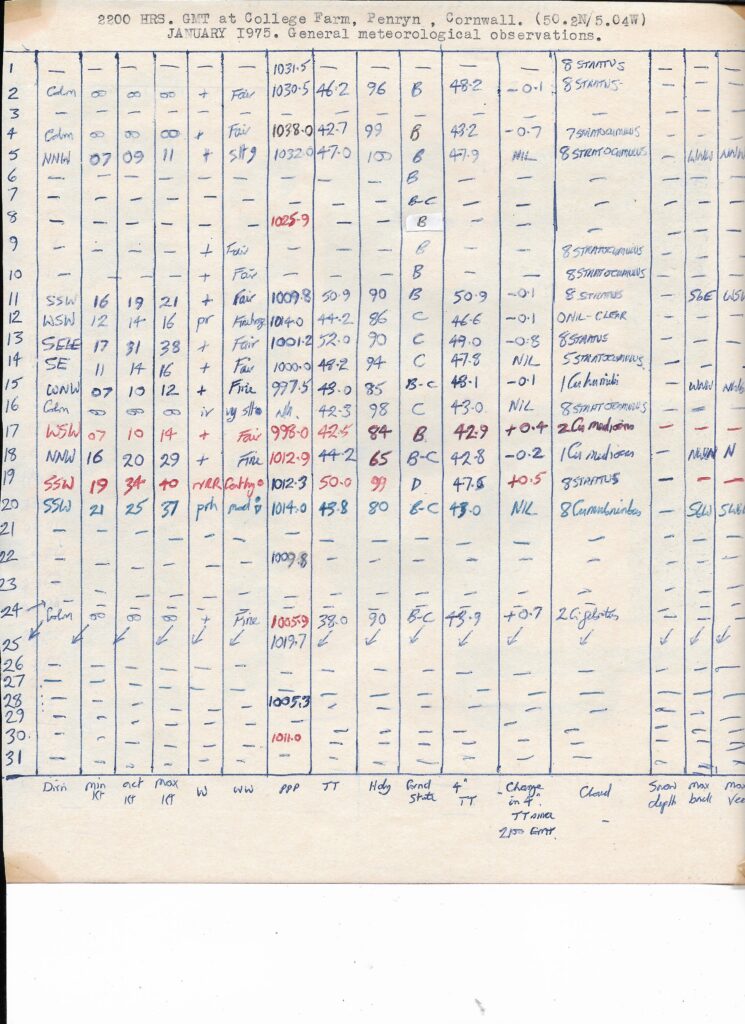 2200 HRS. GMT at College Farm, Penryn, Cornwall. (50.2N/5.04W)
JANUARY 1975. General meteorological observations.
1 — — — — — — 1031.5 — — — — — 8 STRATUS — — —
2 Calm ∞ ∞ ∞ + Fair 1030.5 46.2 96 B 48.2 -0.1 8 STRATUS — — —
3 — — — — — — — — — — — — — — — —
4 Calm ∞ ∞ ∞ + Fair 1038.0 42.7 99 B 43.2 -0.7 7 STRATOCUMULUS — — —
5 NNW 07 09 11 + slt 9 1032.0 47.0 100 B 47.9 NIL 8 STRATOCUMULUS — WNW NNW
6 — — — — — — — — — B — — — — — —
7 — — — — — — — — — B-C — — — — — —
8 — — — — — — 1025.9 — — B — — — — — —
9 + Fair B 8 STRATOCUMULUS
10 — — — — + Fair — — — B — — 8 STRATOCUMULUS — — —
11 SSW 16 19 21 + Fair 1009.8 50.9 90 B 50.9 -0.1 8 STRATUS — SbE WSW
12 WSW 12 14 16 pr 1014.0 44.2 86 C 46.6 -0.1 0 NIL-CLEAR — — —
13 SExE 17 31 38 + Fair 1001.2 52.0 90 C 49.0 -0.8 8 STRATUS — — —
14 SE 11 14 16 + Fair 1000.0 48.2 94 C 47.8 NIL 5 STRATOCUMULUS — — —
15 WNW 07 10 12 + Fine 997.5 43.0 85 B-C 48.1 -0.1 1 Cu humilis — WNW
16 Calm ∞ ∞ ∞ ir vy slt 42.3 98 C 43.0 NIL 8 STRATOCUMULUS — — —
17 WSW 07 10 14 + Fair 998.0 42.5 84 B 42.9 +0.4 2 Cu mediocris — — —
18 NNW 16 20 29 + Fine 1012.9 44.2 65 B-C 42.8 -0.2 1 Cu mediocris — N
19 SSW 19 34 40 rRR 1012.3 50.0 99 D 47.5 +0.5 8 STRATUS — — —
20 SSW 21 25 37 prh mod 1014.0 43.8 80 B-C 43.0 NIL 8 Cumulonimbus —
21 — — — — — — — — — — — — — — — —
22 — — — — — — 1009.8 — — — — — — — — —
23 — — — — — — — — — — — — — — — —
24 Calm ∞ ∞ ∞ + Fine 1005.9 38.0 90 B-C 43.9 +0.7 — — —
25 ↙ ↙ ↙ ↙ ↙ ↙ 1019.7 ↙ ↙ ↙ ↙ ↙ ↙ ↙ ↙ ↙
26 — — — — — — — — — — — — — — — —
27 — — — — — — — — — — — — — — — —
28 — — — — — — 1005.3 — — — — — — — — —
29 — — — — — — — — — — — — — — — —
30 — — — — — — 1011.0 — — — — — — — — —
31 — — — — — — — — — — — — — — — —
Dirn min KT act KT max KT W WW PPP TT Hdy Grnd State 4" TT Change in 4" TT since 2100 GMT Cloud Snow depth max back max Veer